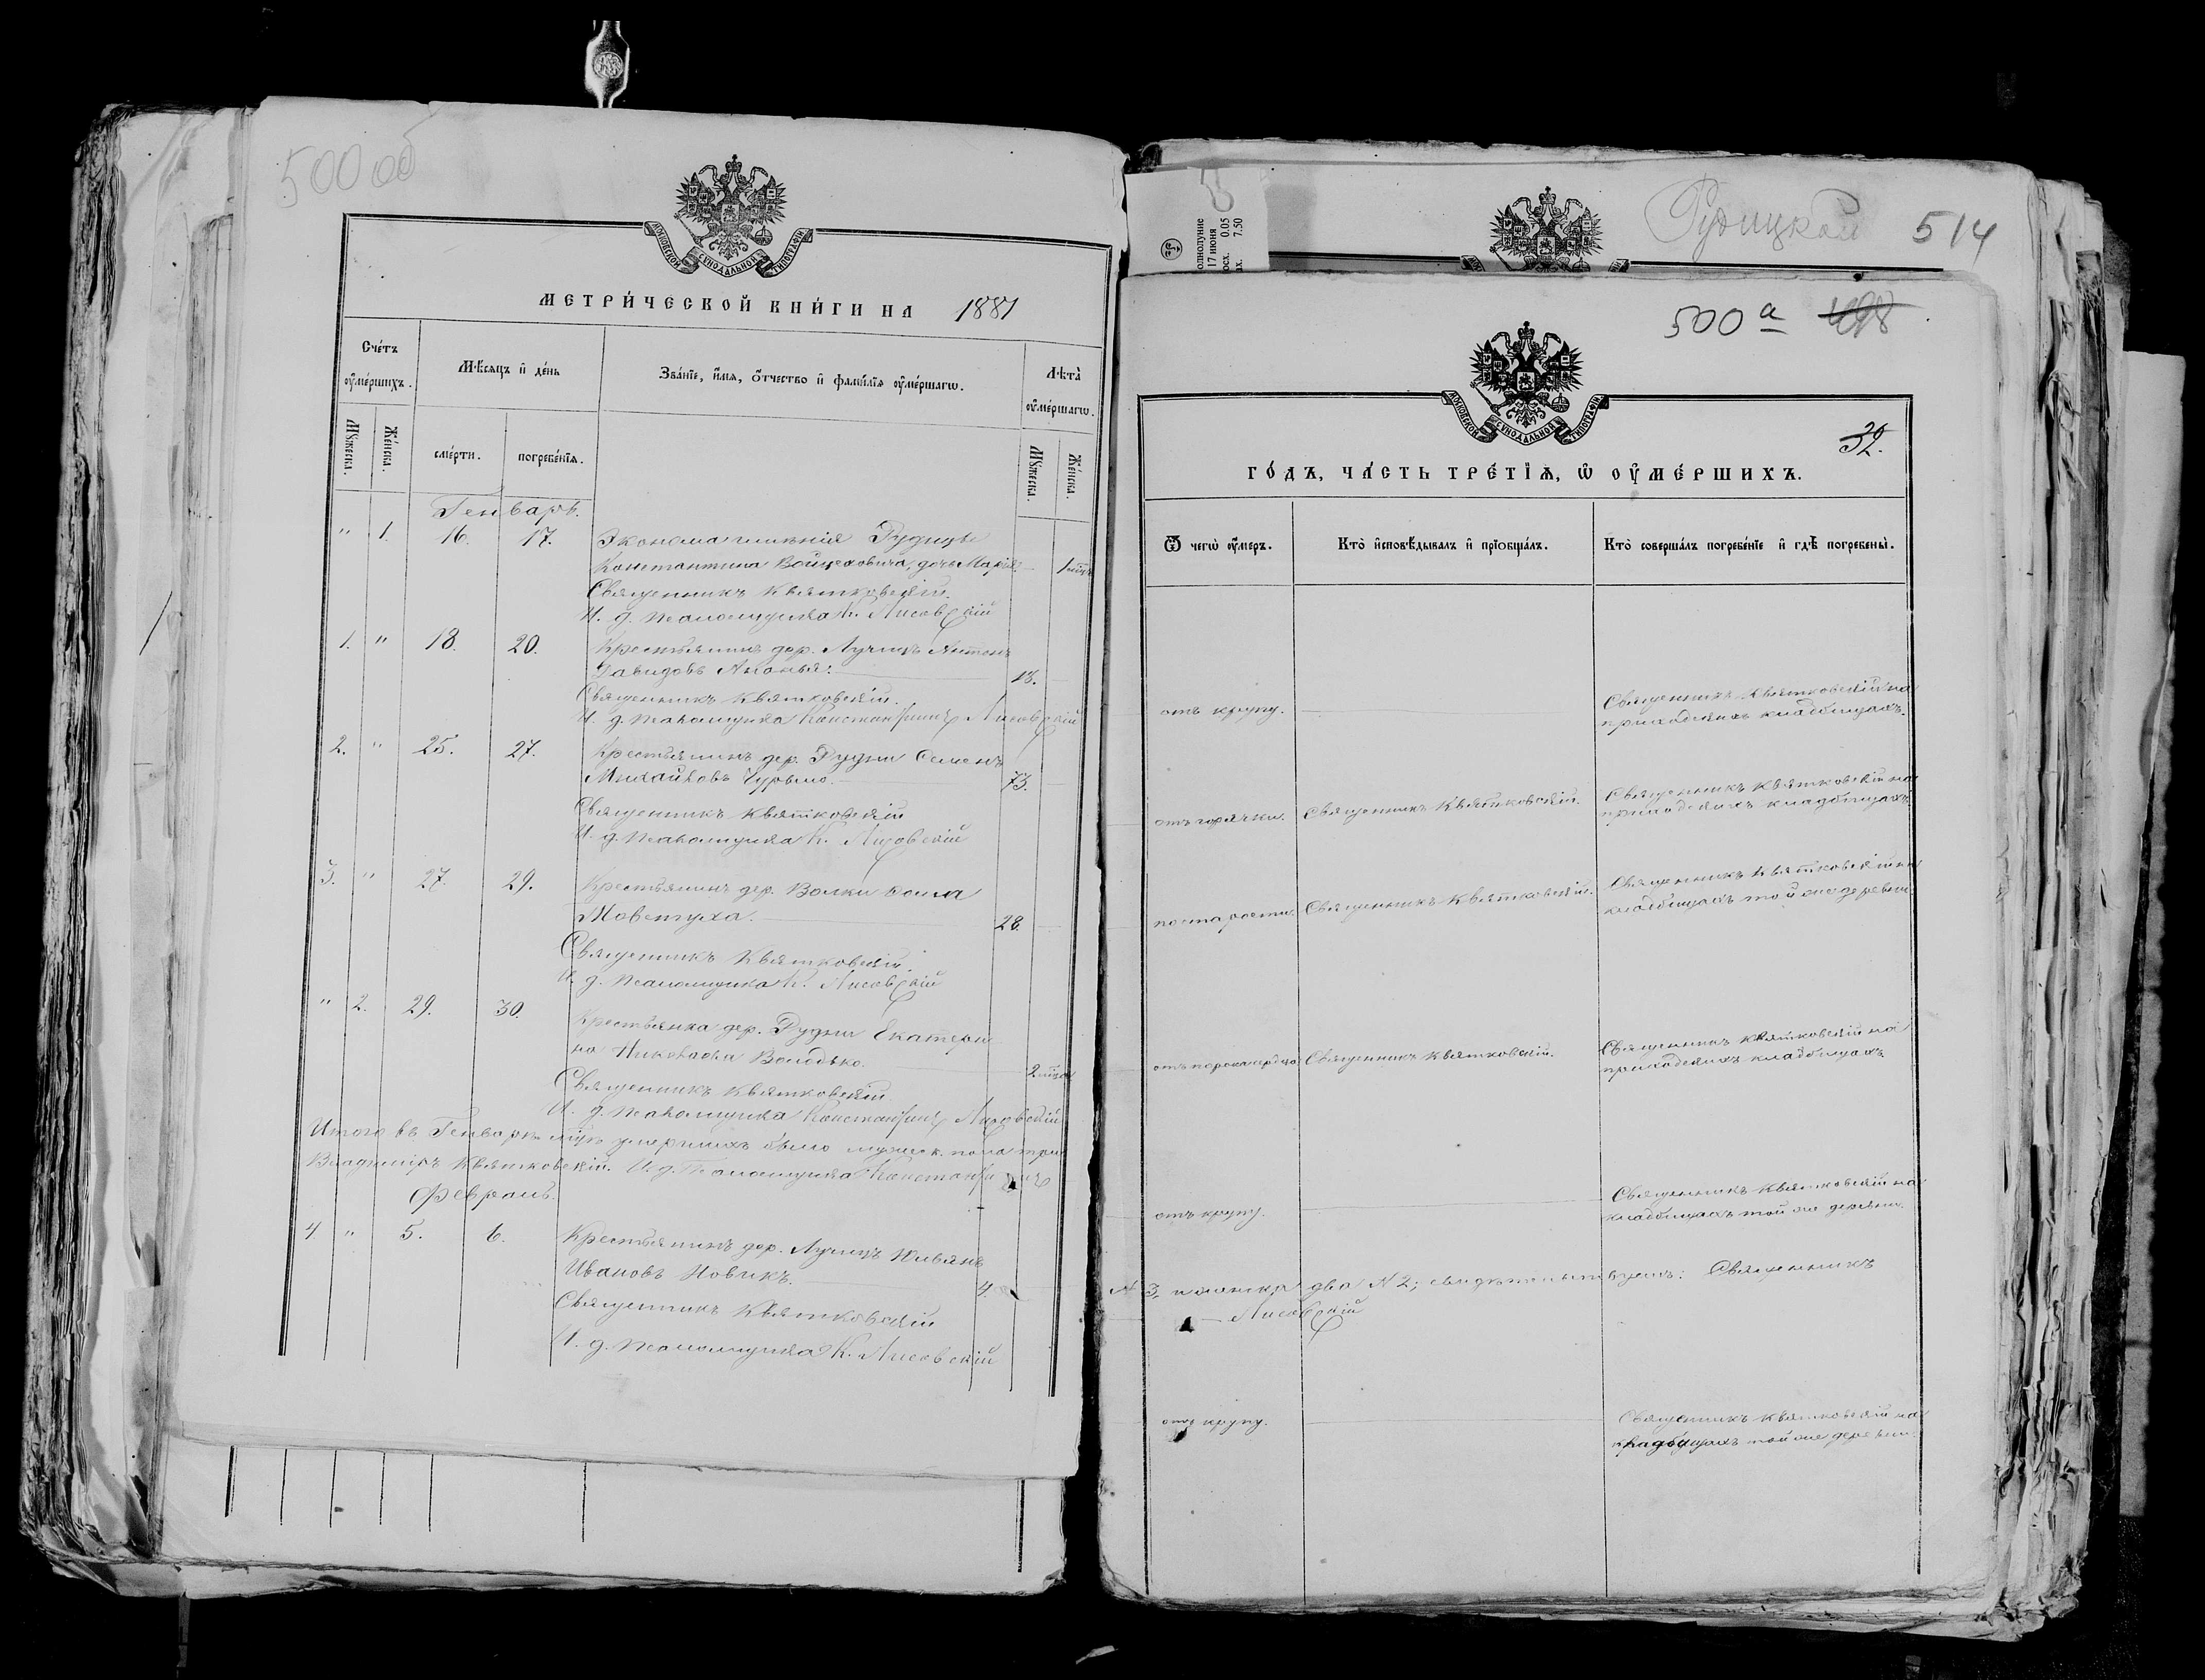 500 об
МОСКОВСКОЙ СУНОДАЛЬНОЙ ТИПОГРАФІИ
МЕТРИ́ЧЕСКОЙ КНИ́ГИ НА 1881
Сче́тъ ᲂу҆ме́ршихъ.
Мѣ́сяцъ и҆ де́нь
Зва́нїе, и҆́мѧ, ѻ҆́тчество и҆ фами́лїѧ ᲂу҆ме́ршагѡ.
Лѣта̀ ᲂу҆ме́ршагѡ.
Мꙋ́жеска.
Же́нска.
сме́рти.
погребе́нїѧ.
Мꙋ́жеска.
Же́нска.
Генварь.
" 1. 16. 17. Эконома имѣнія Рудицы
Константина Войцеховича, дочь Марія. 1 мѣс.
Священникъ Квятковскій.
И. д. Псаломщика К. Лисовскій
1. " 18. 20. Крестьянинъ дер. Лучицъ Антонъ
Давидовъ Ананья. 18.
Священникъ Квятковскій.
И. д. Псаломщика Константинъ Лисовскій
2. " 25. 27. Крестьянинъ дер. Рудни Семенъ
Михайловъ 73.
Священникъ Квятковскій
И. д. Псаломщика К. Лисовскій
3. " 27. 29. Крестьянинъ дер. Волки
28.
Священникъ Квятковскій.
И. д. Псаломщика К. Лисовскій
" 2. 29. 30. Крестьянка дер. Рудни Екатери
на Николаева Володько. 2
Священникъ Квятковскій
И. д. Псаломщика Константинъ Лисовскій
Итого въ Генварѣ м-цѣ умершихъ было мужеск. пола три
Владиміръ Квятковскій. И. д. Псаломщика Константинъ
Февраль.
4 " 5. 6. Крестьянинъ дер. Лучицъ Юльянъ
Ивановъ Новикъ. 4.
Священникъ Квятковскій
И. д. Псаломщика К. Лисовскій
олнолуние
17 июня
осх. 0.05
ах. 7.50
Рудицкой 514
500 а 498
МОСКОВСКОЙ СУНОДАЛЬНОЙ ТИПОГРАФІИ
32.
ГО́ДЪ, ЧА́СТЬ ТРЕ́ТЇѦ, Ѡ҆ ОУ҆МЕ́РШИХЪ.
Ѿ чегѡ̀ ᲂу҆́меръ.
Кто̀ и҆сповѣ́дывалъ и҆ прїѡбща́лъ.
Кто̀ соверша́лъ погребе́нїе и҆ гдѣ̀ погребены̀.
отъ крупу.
Священникъ Квятковскій на
приходскихъ кладбищахъ.
отъ горячки. Священникъ Квятковскій.
Священникъ Квятковскій на
приходскихъ кладбищахъ
по старости. Священникъ Квятковскій.
Священникъ Квятковскій на
кладбищахъ той же деревни
отъ порока сердца Священникъ Квятковскій.
Священникъ Квятковскій на
приходскихъ кладбищахъ
отъ крупу.
Священникъ Квятковскій на
кладбищахъ той же деревни.
№ 3, и женска два № 2; свидѣтельствуемъ: Священникъ
Лисовскій
отъ крупу.
Священникъ Квятковскій на
кладбищахъ той же деревни.